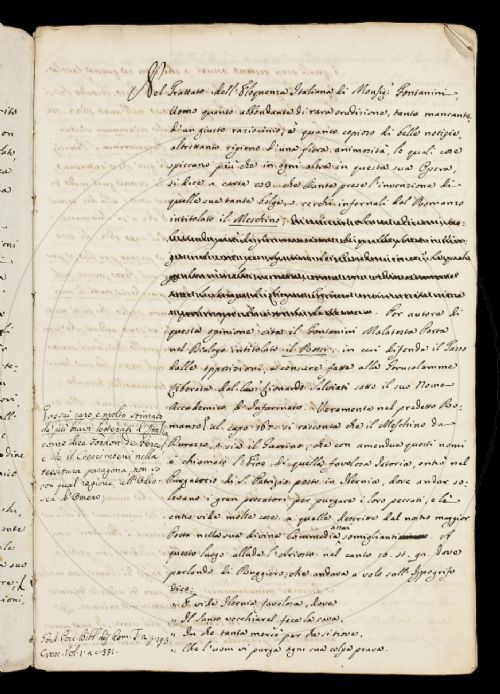 Nel Trattato dell'Eloquenza Italiana di Monsig.r Fontanini,
Uomo quanto abbondante di rara erudizione, tanto mancante
di un giusto raziocinio, e quanto copioso di belle notizie,
altrettanto ripieno di una fiera animosità, le quali cose
spiccano più che in ogni altra in questa sua Opera,
si dice a carte che Dante prese l'invenzione di
quelle sue tante bolge, e cerchi infernali dal Romanzo
intitolato il Meschino;
Per autore di
questa opinione cita il Fontanini Malatesta Porta
nel Dialogo intitolato il Rossi, in cui difende il Tasso
dalle opposizioni, e censure fatte alla Gerusalemme
Liberata dal Cav. Lionardo Salviati sotto il suo Nome
Accademico d'Infarinato. Veramente nel predetto Ro-
manzo al capo 167. si racconta che il Meschino da
Durazzo, o sia il Guerino, che con amendue questi nomi
è chiamato l'Eroe di quella favolosa Istoria, entrò nel
Purgatorio di S. Patrizio posto in Ibernia, dove andar so-
levano i gran peccatori per purgare i loro peccati, e là
entro vide molte cose a quelle descritte dal nostro maggior
Poeta nella sua divina Commedia assai somiglianti. A
questo luogo allude l'Ariosto nel canto 10. st. 92. dove
parlando di Ruggiero, che andava a volo sull'Ippogrifo
dice:
„ E vide Ibernia favolosa, dove
„ Il santo vecchiarel fece la cava,
„ In che tanta mercè par che si trove,
„ Che l'uom vi purga ogni sua colpa prava.
assai raro, e molto stimato
da' più bravi letterati d'Italia
come dice
e che il Crescimbeni nella
testura paragona, non so
con qual ragione, all'Odis-
sea d'Omero.
Cresc. Vol. 1. a c. 331.